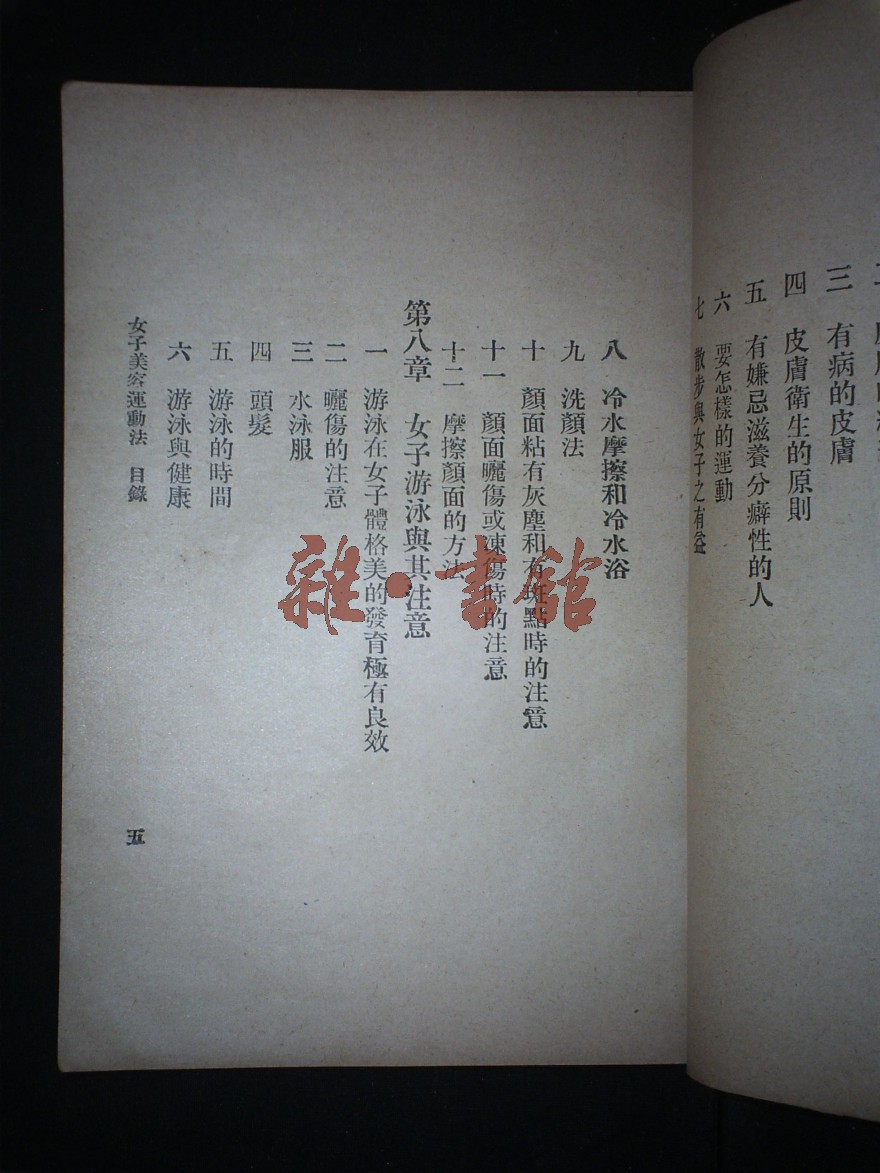 三 有病的皮膚
四 皮膚衛生的原則
五 有嫌忌滋養分癖性的人
六 要怎樣的運動
七 散步與女子之有益
八 冷水摩擦和冷水浴
九 洗顏法
十 顏面粘有灰塵和有斑點時的注意
十一 顏面曬傷或凍傷時的注意
十二 摩擦顏面的方法
第八章 女子游泳與其注意
一 游泳在女子體格美的發育極有良效
二 曬傷的注意
三 水泳服
四 頭髮
五 游泳的時間
六 游泳與健康
女子美容運動法 目錄
五
雜·書館